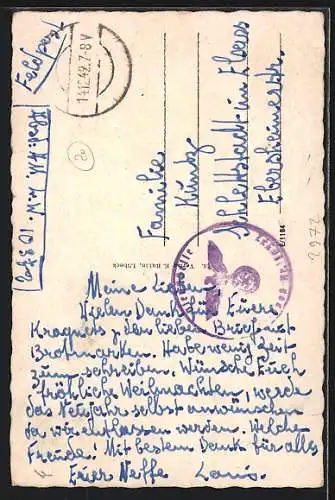 Feldpost
14.12.42.7-8V
20
Familie
Kuntz
Schlettstadt im Elsass
Ebersheimerstr.
2972
E/1184
Verlag F. Hahn, Lübeck
Meine Lieben
Vielen Dank für Euere
z. den lieben Brief mit
Brotmarken. Habe wenig Zeit
zum schreiben. Wünsche Euch
fröhliche Weihnachten, werde
das Neujahr selbst anwünschen
da wir entlassen werden. Welche
Freude. Mit bestem Dank für alles
Euer Neffe Louis.